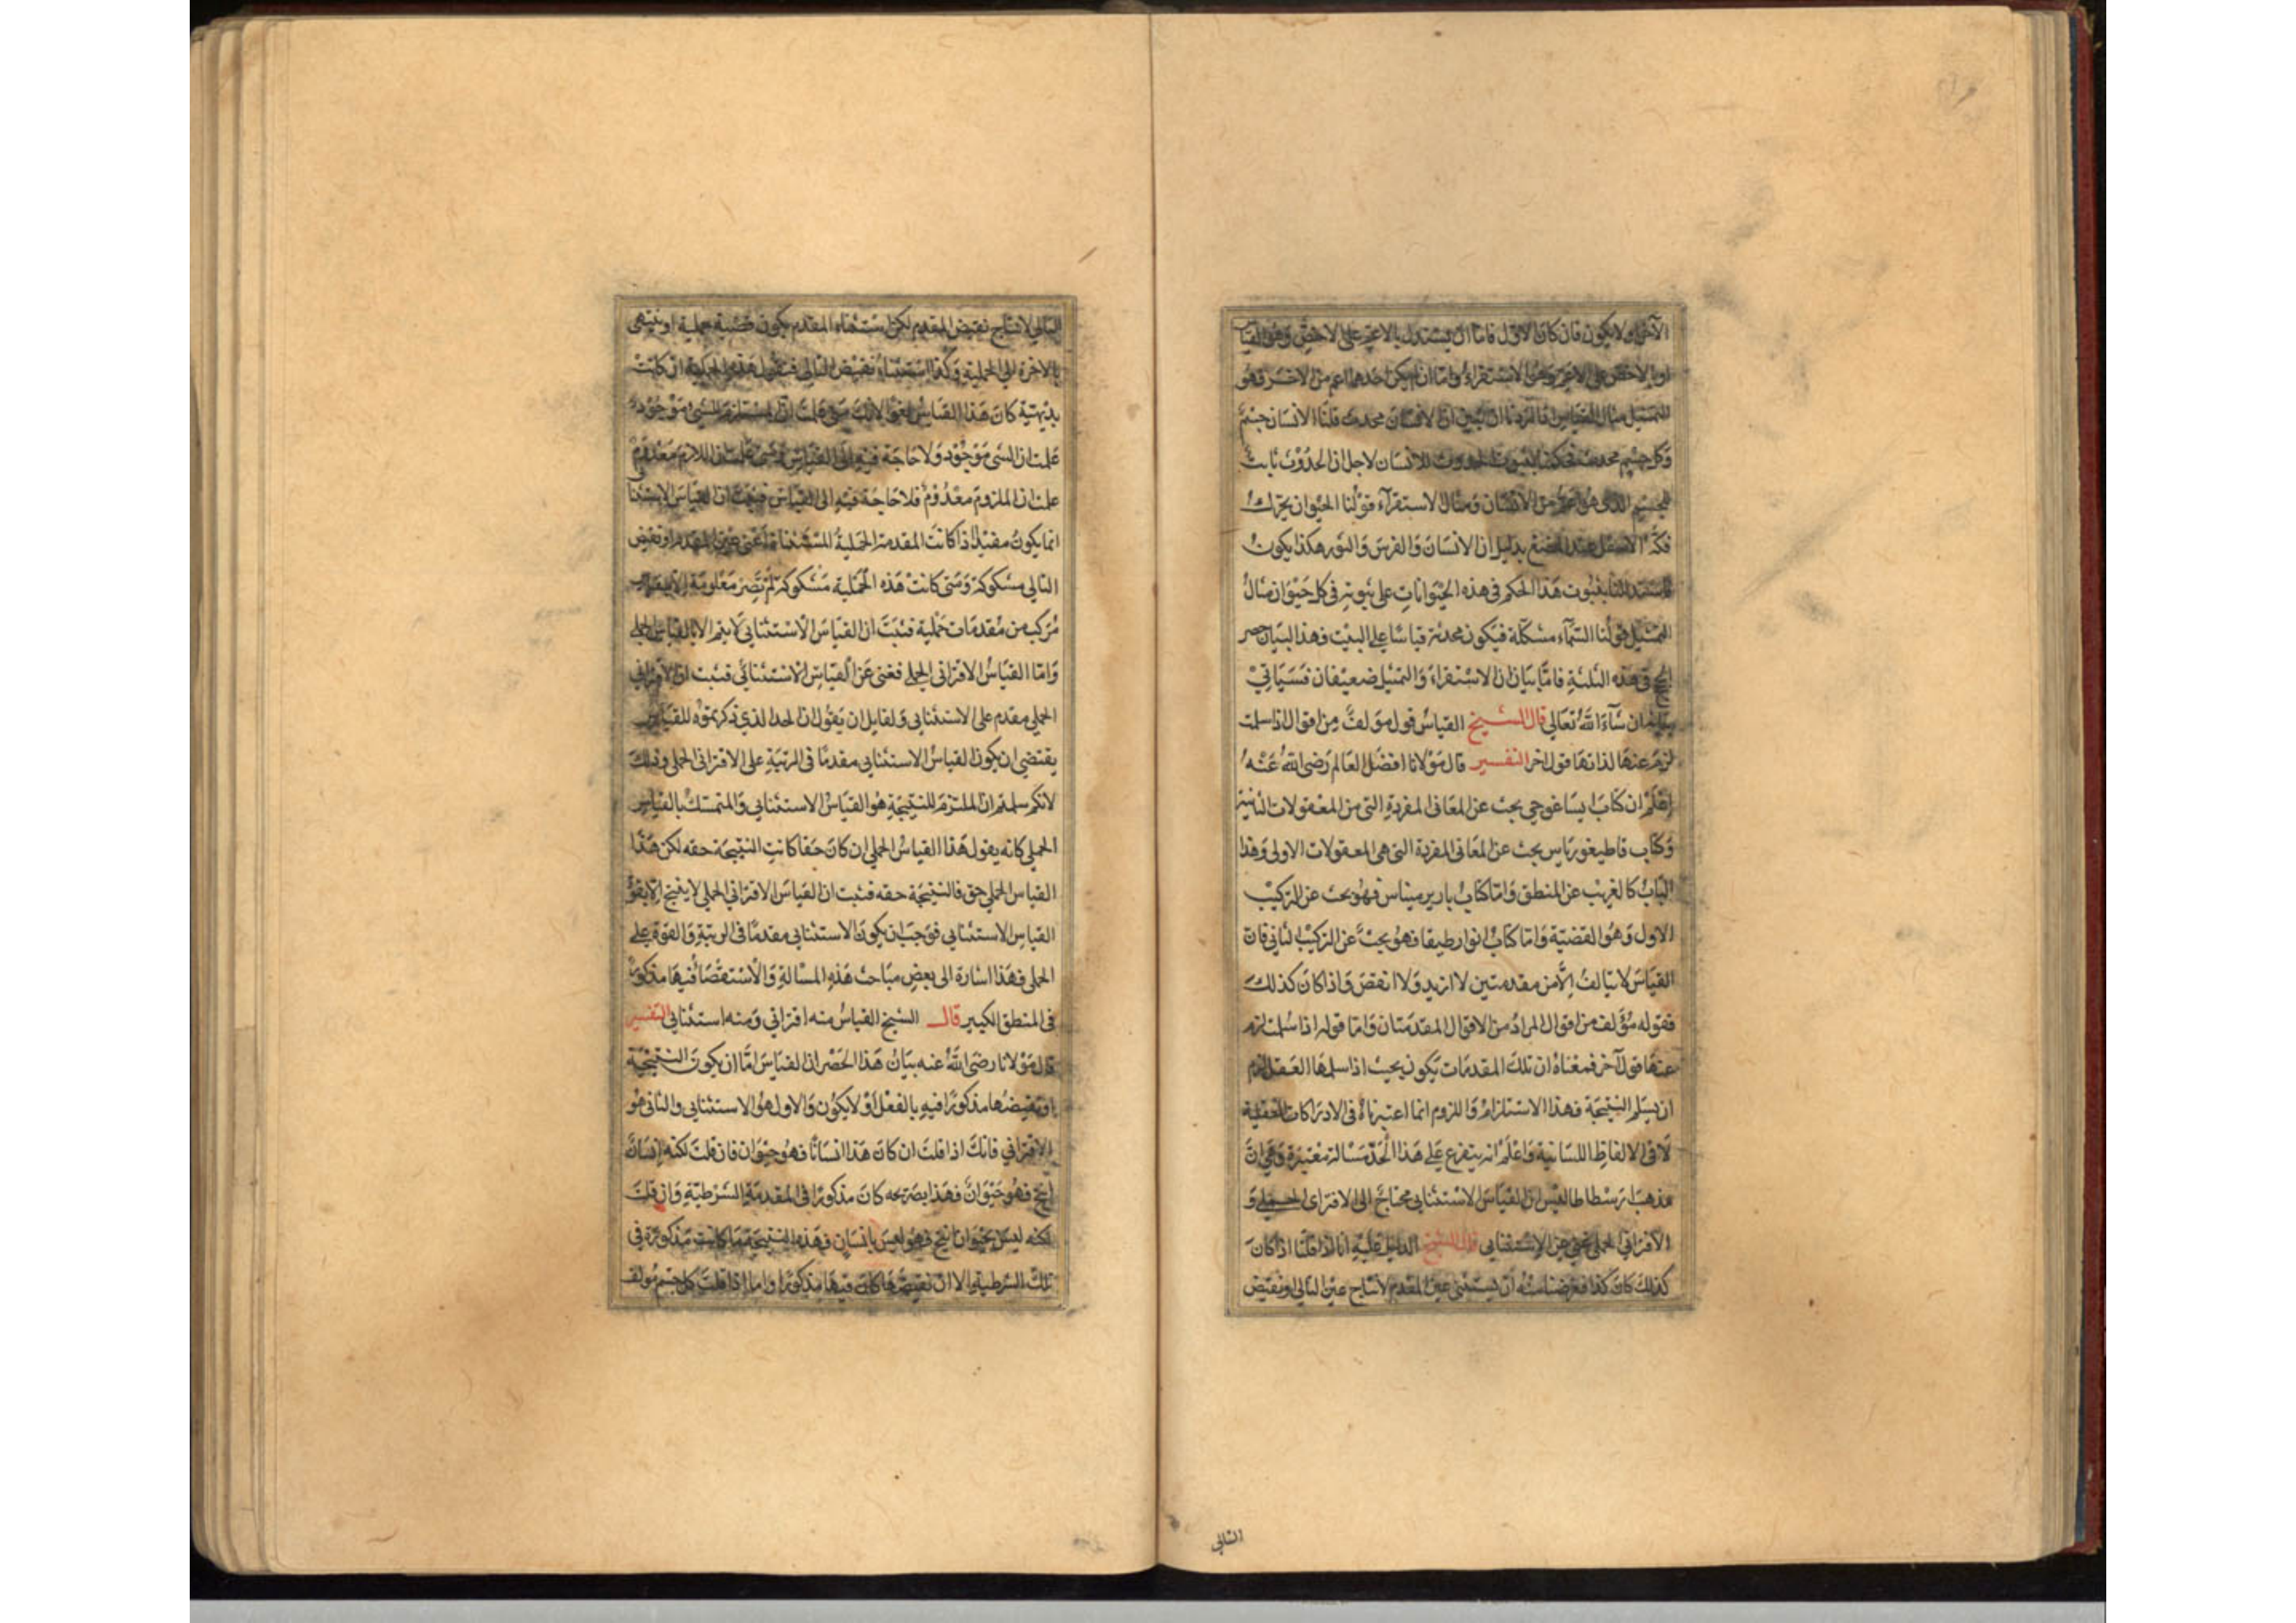 الآخر او لا يكون فان كان الاول فاما ان يستدل بالاعم على الاخص وهو القياس
او بالاخص على الاعم وهو الاستقراء واما ان لم يكن احدهما اعم من الاخر فهو
التمثيل مثال القياس فاذا اردنا ان نبين ان الانسان محدث قلنا الانسان جسم
وكل جسم محدث الحدوث للانسان لاجل ان الحدوث ثابت
للجسم الذى هو اعم من الانسان ومثال الاستقرآء قولنا الحيوان يحرك
فكه الاسفل عند المضغ بدليل ان الانسان والفرس والثور هكذا يكون
بثبوت هذا الحكم فى هذه الحيوانات على ثبوته فى كل حيوان مثال
التمثيل قولنا السمآء مشكلة فيكون محدثة قياسا على البيت فهذا البيان حصر
الحجج فى هذه الثلثة فاما بيان ان الاستقراء والتمثيل ضعيفان فسياتى
بيانه ان شآء الله تعالى قال الشيخ القياس قول مؤلف من اقوال اذا سلمت
لزم عنها لذاتها قول اخر التفسير قال مولانا افضل العالم رضى الله عنه
اعلم ان كتاب ايساغوجى بحث عن المعانى المفردة التى من المعقولات الثانية
وكتاب قاطيغورياس بحث عن المعانى المفردة التى هى المعقولات الاولى وهذا
الباب كالغريب عن المنطق واما كتاب باريرميناس فهو بحث عن التركيب
الاول وهو القضية واما كتاب انوارطيقا فهو بحث عن التركيب الثانى فان
القياس لا يتالف الا من مقدمتين لا ازيد ولا انقص واذا كان كذلك
فقوله مؤلف من اقوال المراد من الاقوال المقدمتان واما قوله اذا سلمت لزم
عنها قول آخر فمعناه ان تلك المقدمات يكون بحيث اذا سلمها العقل لزم
ان يسلم النتيجة فهذا الاستلزام واللزوم انما اعتبرناه فى الادراكات العقلية
لا فى الالفاظ اللسانية واعلم انه يتفرع على هذا الحد مسالة معتبرة وهى ان
مذهب ارسطاطاليس ان القياس الاستثنايى محتاج الى الاقترانى الحملى و
الاقترانى الحملى غنى عن الاستثنايى قال الشيخ الدليل عليه انا اذا قلنا اذا كان
كذلك كان كذا فغرضنا منه ان يستثنى عين المقدم لانتاج عين التالى ونقيض
التالى
التالى لانتاج نقيض المقدم لكن استثناء المقدم يكون قضية حملية او ينتهى
بالاخرة الى الحملية وكذا استثناء نقيض التالى فنقول هذه الحملية ان كانت
بديهية كان هذا القياس لغوا لانك متى علمت ان المستلزم للشىء موجود
علمت ان الشى موجود ولا حاجة فيه الى القياس ومتى علمت ان اللازم معدوم
علمت ان الملزوم معدوم فلا حاجة فيه الى القياس فثبت ان القياس الاستثنا
انما يكون مفيدا اذا كانت المقدمة الحملية المستثناة اعنى عين المقدم او نقيض
التالى مشكوكة ومتى كانت هذه الحملية مشكوكة لم تصر معلومة الا بقياس
مركب من مقدمات حملية فثبت ان القياس الاستثنايى لا يتم الا بالقياس الحملى
واما القياس الاقترانى الحملى فغنى عن القياس الاستثنائى فثبت ان الاقترانى
الحملى مقدم على الاستثنايى ولقايل ان يقول ان الحد الذى ذكرتموه للقياس
يقتضى ان يكون القياس الاستثنايى مقدما فى الرتبة على الاقترانى الحملى وذلك
لانكم سلمتم ان الملتزم للنتيجة هو القياس الاستثنايى والمتمسك بالقياس
الحملى كانه يقول هذا القياس الحملى ان كان حقا كانت النتيجة حقه لكن هذا
القياس الحملى حق فالنتيجة حقه فثبت ان القياس الاقترانى الحملى لا ينتج الا بقوة
القياس الاستثنايى فوجب ان يكون الاستثنايى مقدما فى الرتبة والقوة على
الحملى فهذا اشارة الى بعض مباحث هذه المسالة والاستقصا فيها مذكور
فى المنطق الكبير قال الشيخ القياس منه اقترانى ومنه استثنايى التفسير
قال مولانا رضى الله عنه بيان هذا الحصر ان القياس اما ان يكون النتيجة
او نقيضها مذكورا فيه بالفعل او لا يكون والاول هو الاستثنايى والثانى هو
الاقترانى فانك اذا قلت ان كان هذا انسانا فهو حيوان فان قلت لكنه انسان
انتج فهو حيوان فهذا بصريحه كان مذكورا فى المقدمة الشرطية وان قلت
لكنه ليس بحيوان انتج فهو ليس بانسان فهذه النتيجة ما كانت مذكورة فى
تلك الشرطية الا ان نقيضها كان فيها مذكورا واما اذا قلت كل جسم مولف